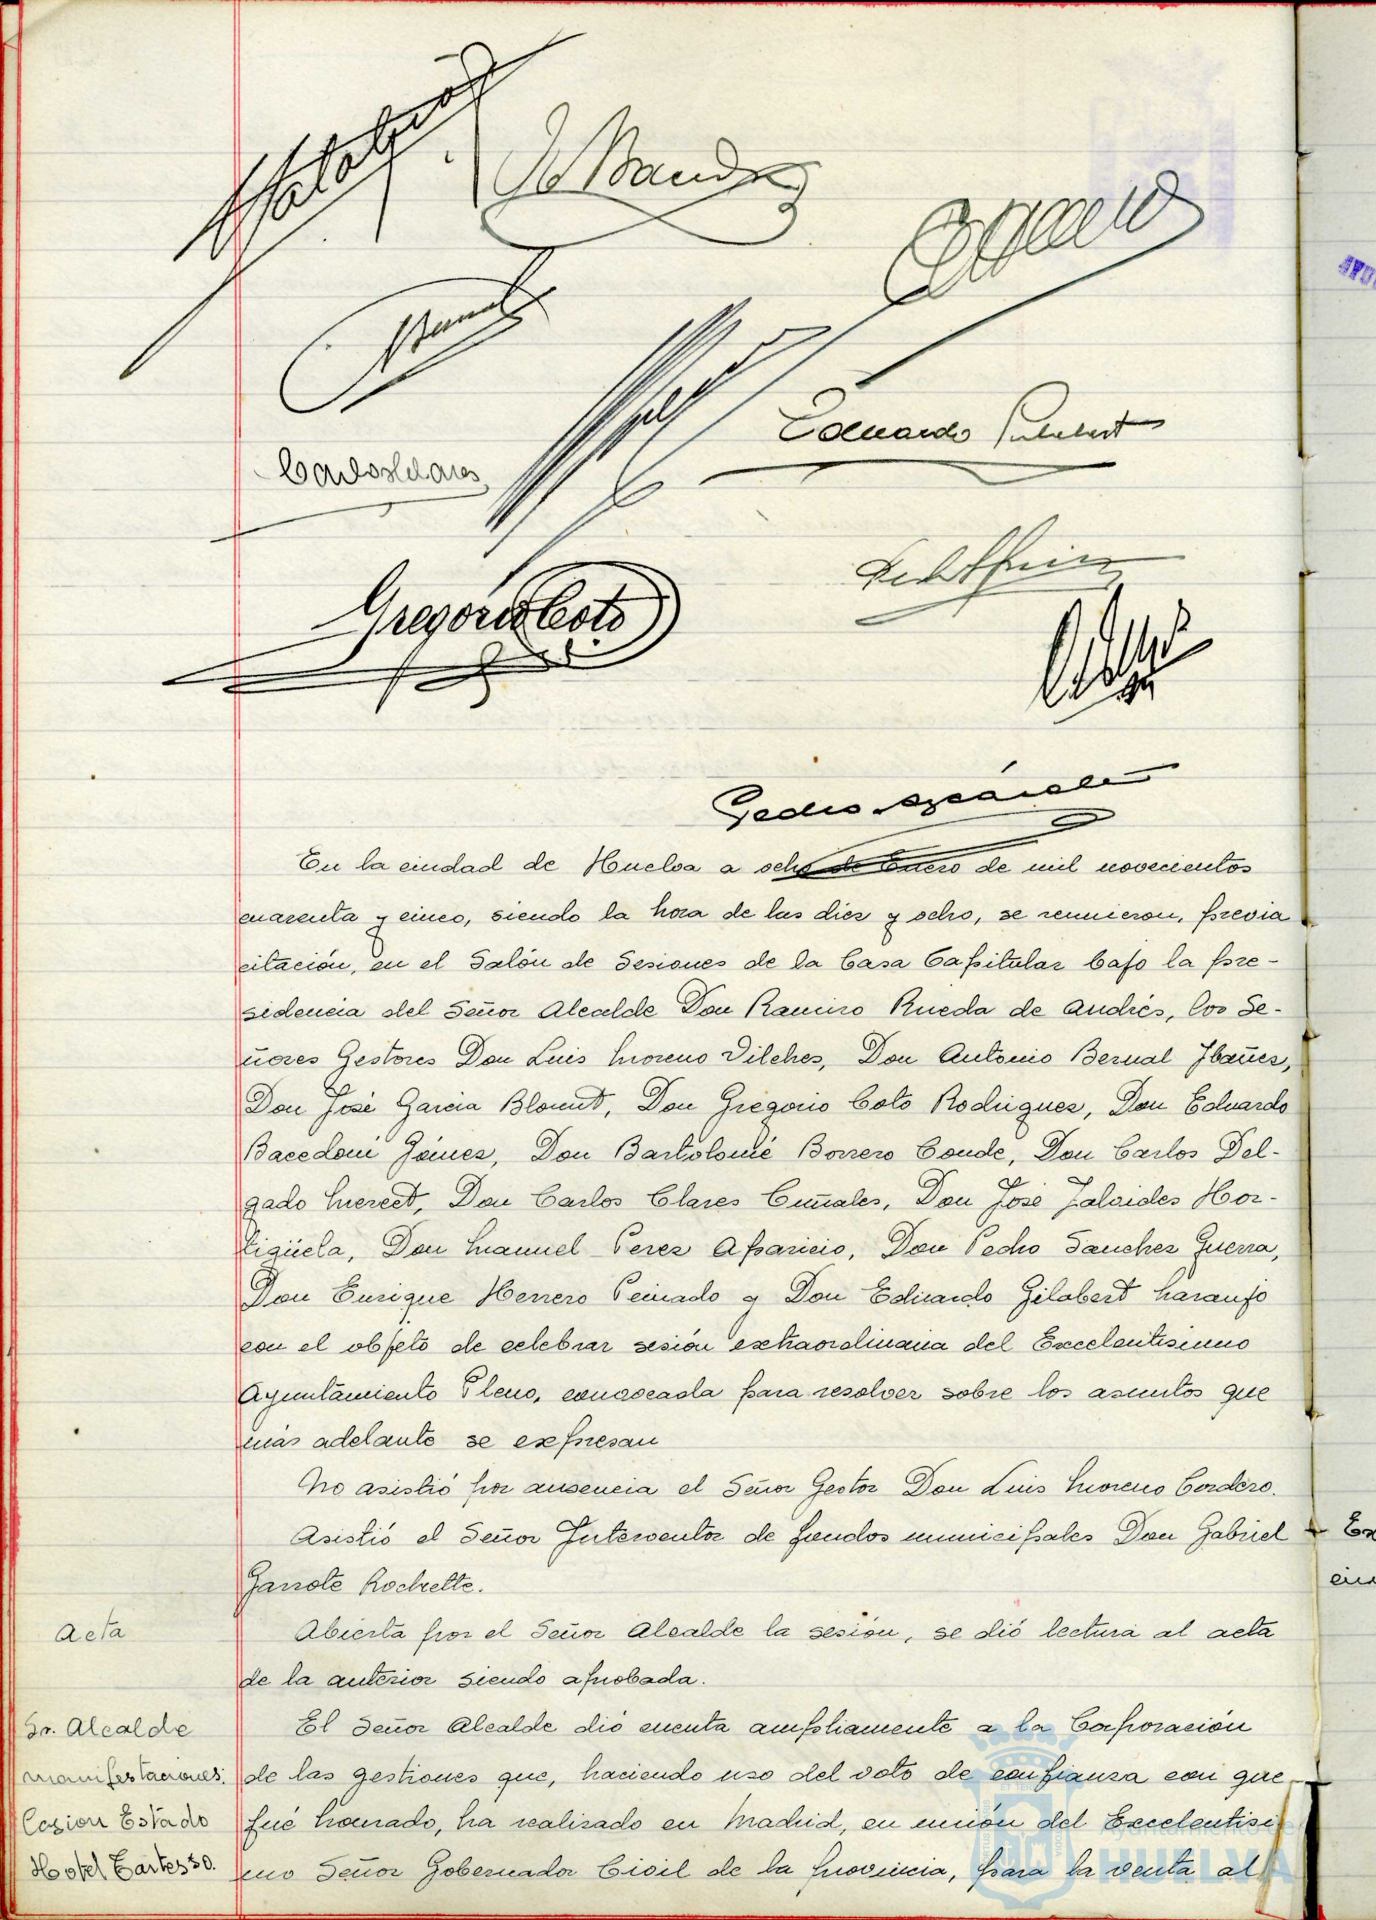 Carlos Clares
Eduardo Gilabert
Gregorio Coto
Pedro
En la ciudad de Huelva a ocho de Enero de mil novecientos
cuarenta y cinco, siendo la hora de las diez y ocho, se reunieron, previa
citación, en el Salón de Sesiones de la Casa Capitular bajo la pre-
sidencia del Señor Alcalde Don Ramiro Rueda de Andrés, los Se-
ñores Gestores Don Luis Moreno Vilches, Don Antonio Bernal Ibañez,
Don José Garcia Blount, Don Gregorio Coto Rodriguez, Don Eduardo
Bacedoni Gómez, Don Bartolomé Borrero Conde, Don Carlos Del-
gado Mercet, Don Carlos Clares Cuñales, Don José Jalvides Hor-
tigüela, Don Manuel Perez Aparicio, Don Pedro Sanchez Guerra,
Don Enrique Herrero Peinado y Don Eduardo Gilabert Naranjo
con el objeto de celebrar sesión extraordinaria del Excelentisimo
Ayuntamiento Pleno, convocada para resolver sobre los asuntos que
más adelante se expresan
No asistió por ausencia el Señor Gestor Don Luis Moreno Cordero.
Asistió el Señor Interventor de fondos municipales Don Gabriel
Garrote Rochette.
Acta
Abierta por el Señor Alcalde la sesión, se dió lectura al acta
de la anterior siendo aprobada.
Sr. Alcalde
manifestaciones:
Cesion Estado
Hotel Tartesso.
El Señor Alcalde dió cuenta ampliamente a la Corporación
de las gestiones que, haciendo uso del voto de confianza con que
fué honrado, ha realizado en Madrid, en unión del Excelentisi
mo Señor Gobernador Civil de la Provincia, para la venta al
Ayuntamiento de
HUELVA